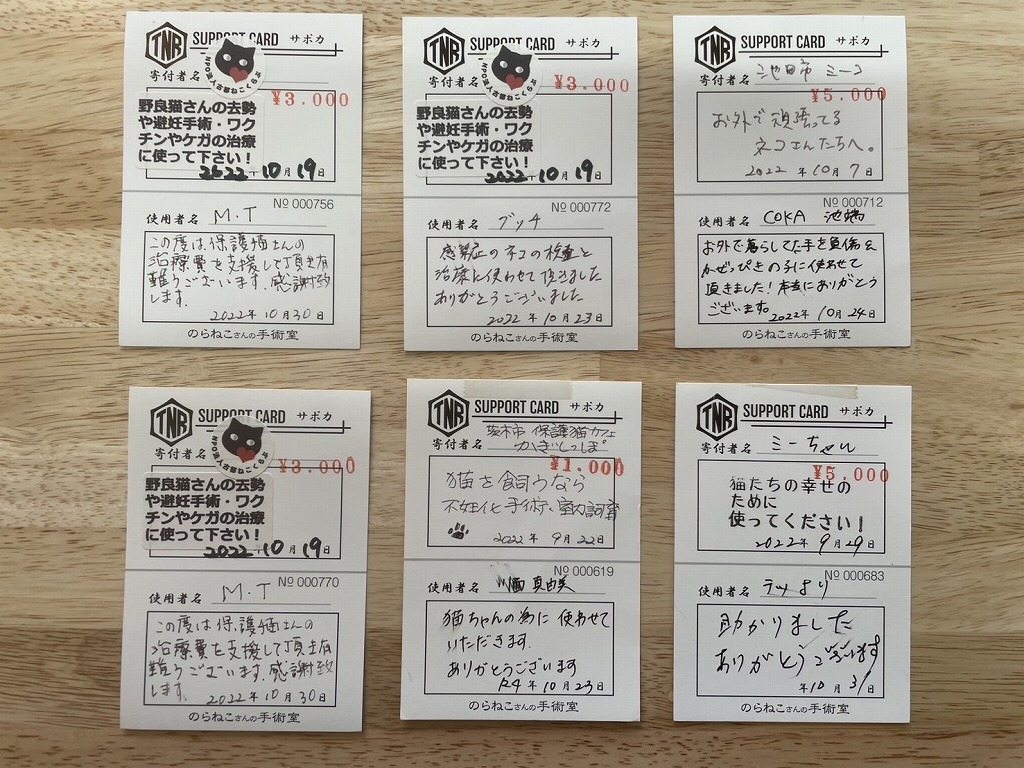 TNR SUPPORT CARD サポカ
寄付者名
NPO法人古都ねこくらぶ
¥3.000
野良猫さんの去勢
や避妊手術・ワク
チンやケガの治療
に使って下さい！
2022年10月19日
№ 000756
使用者名 M・T
この度は、保護猫さんの
治療費を支援して頂き有
難うございます。感謝致
します。
2022年10月30日
のらねこさんの手術室
TNR SUPPORT CARD サポカ
寄付者名
NPO法人古都ねこくらぶ
¥3.000
野良猫さんの去勢
や避妊手術・ワク
チンやケガの治療
に使って下さい！
2022年10月19日
№ 000772
使用者名 ブッチ
感染症のネコの検査と
治療に使わせて頂きました
ありがとうございました
2022年10月23日
のらねこさんの手術室
TNR SUPPORT CARD サポカ
寄付者名 池田市 ミーコ
¥5.000
お外で頑張ってる
ネコさんたちへ。
2022年10月7日
№ 000712
使用者名 COKA 池端
お外で暮らしてた手を負傷&
かぜっぴきの子に使わせて
頂きました！本当にありがとう
ございます。
2022年10月24日
のらねこさんの手術室
TNR SUPPORT CARD サポカ
寄付者名
NPO法人古都ねこくらぶ
¥3.000
野良猫さんの去勢
や避妊手術・ワク
チンやケガの治療
に使って下さい！
2022年10月19日
№ 000770
使用者名 M・T
この度は保護猫さんの
治療費を支援して頂き有
難うございます。感謝致
します。
2022年10月30日
のらねこさんの手術室
TNR SUPPORT CARD サポカ
茨木市 保護猫カフェ
寄付者名 かぎしっぽ
¥1.000
猫を飼うなら
不妊化手術、室内飼育
2022年9月22日
№ 000619
使用者名 真由美
猫ちゃんの為に使わせて
いただきます。
ありがとうございます
R4年10月23日
のらねこさんの手術室
TNR SUPPORT CARD サポカ
寄付者名 ミーちゃん
¥5.000
猫たちの幸せの
ために
使ってください！
2022年9月29日
№ 000683
使用者名 より
助かりました
ありがとうございます
年10月31日
のらねこさんの手術室